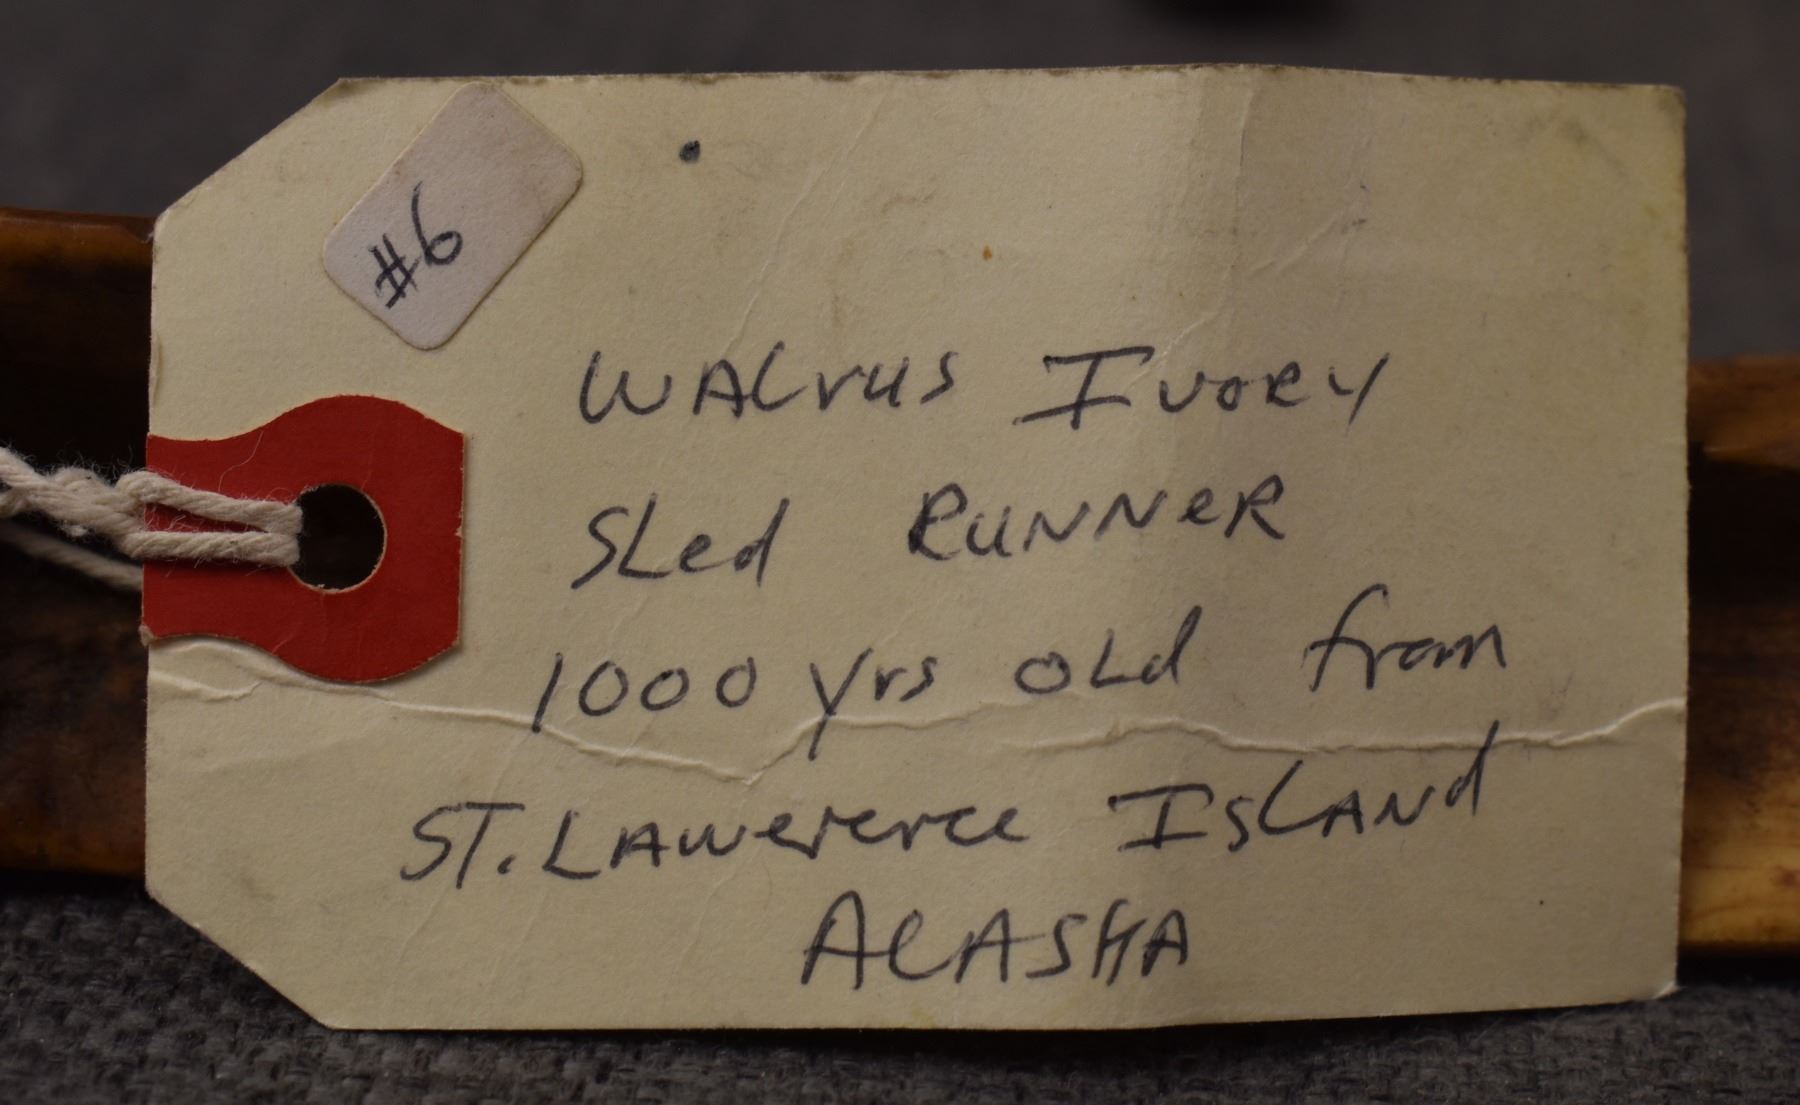 #6
WALrus IvoRy
SLed RUNNeR
1000 yrs oLd from
ST. LAwererce IsLANd
ALASKA